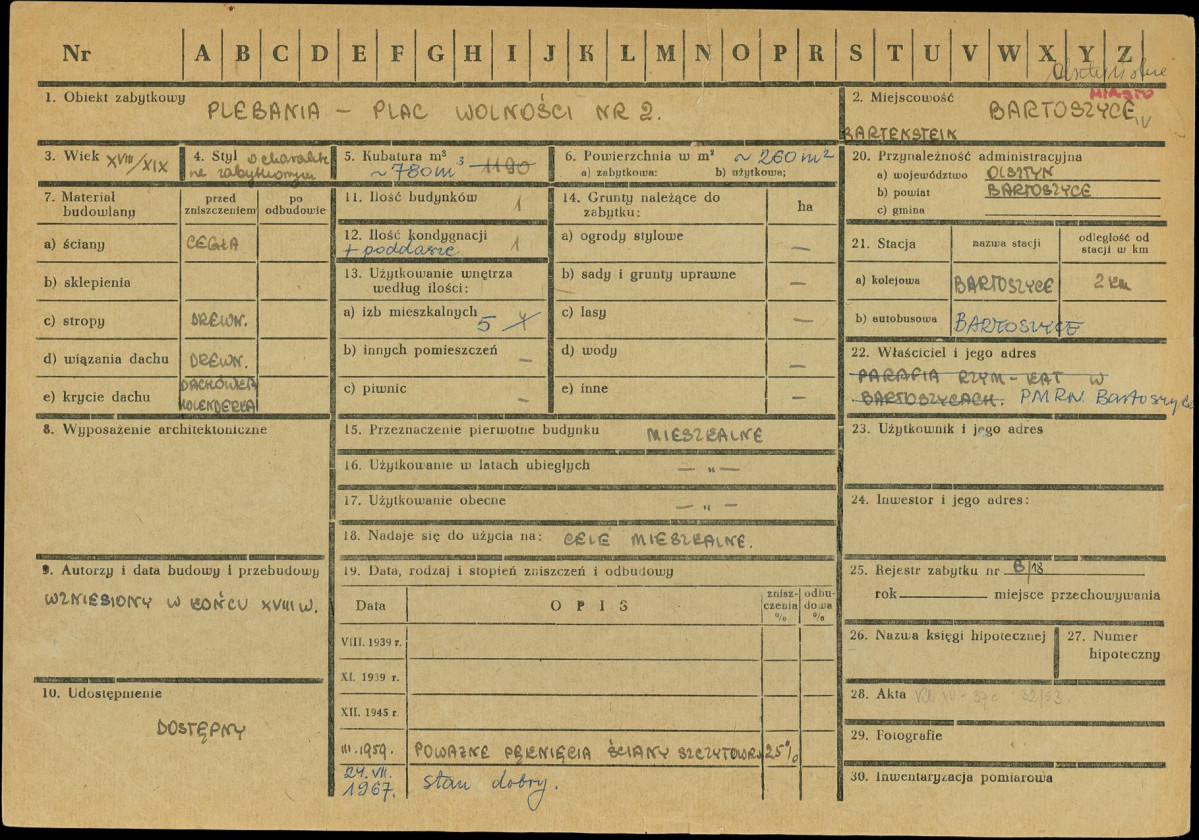 Nr A B C D E F G H I J K L M N O P R S T U V W X Y Z
1. Obiekt zabytkowy
PLEBANIA – PLAC WOLNOŚCI NR 2.
2. Miejscowość
MIASTO
BARTOSZYCE IV
BARTENSTEIN
3. Wiek XVIII/XIX
4. Styl o charakte
rze zabytkowym
5. Kubatura m³
~ 780 m³ 1190
6. Powierzchnia w m² ~ 260 m²
a) zabytkowa: b) użytkowa;
7. Materiał budowlany
przed zniszczeniem
po odbudowie
a) ściany CEGŁA
b) sklepienia
c) stropy DREWN.
d) wiązania dachu DREWN.
e) krycie dachu DACHÓWKA
HOLENDERKA
8. Wyposażenie architektoniczne
9. Autorzy i data budowy i przebudowy
WZNIESIONY W KOŃCU XVIII W.
10. Udostępnienie
DOSTĘPNY
11. Ilość budynków 1
12. Ilość kondygnacji 1
+ poddasze
13. Użytkowanie wnętrza
według ilości:
a) izb mieszkalnych 5
b) innych pomieszczeń –
c) piwnic –
14. Grunty należące do
zabytku: ha
a) ogrody stylowe –
b) sady i grunty uprawne –
c) lasy –
d) wody –
e) inne –
15. Przeznaczenie pierwotne budynku MIESZKALNE
16. Użytkowanie w latach ubiegłych – „ –
17. Użytkowanie obecne – „ –
18. Nadaje się do użycia na: CELE MIESZKALNE.
19. Data, rodzaj i stopień zniszczeń i odbudowy
Data OPIS znisz-czenia % odbu-dowa %
VIII. 1939 r.
XI. 1939 r.
XII. 1945 r.
III. 1959. POWAŻNE PĘKNIĘCIA ŚCIANY SZCZYTOWEJ 25%
24. VII.
1967. stan dobry.
20. Przynależność administracyjna
a) województwo OLSZTYN
b) powiat BARTOSZYCE
c) gmina
21. Stacja
nazwa stacji
odległość od stacji w km
a) kolejowa BARTOSZYCE 2 km
b) autobusowa BARTOSZYCE
22. Właściciel i jego adres
PARAFIA RZYM-KAT W
BARTOSZYCACH. PMRN. Bartoszyce
23. Użytkownik i jego adres
24. Inwestor i jego adres:
25. Rejestr zabytku nr B/18
rok miejsce przechowywania
26. Nazwa księgi hipotecznej
27. Numer
hipoteczny
28. Akta
29. Fotografie
30. Inwentaryzacja pomiarowa